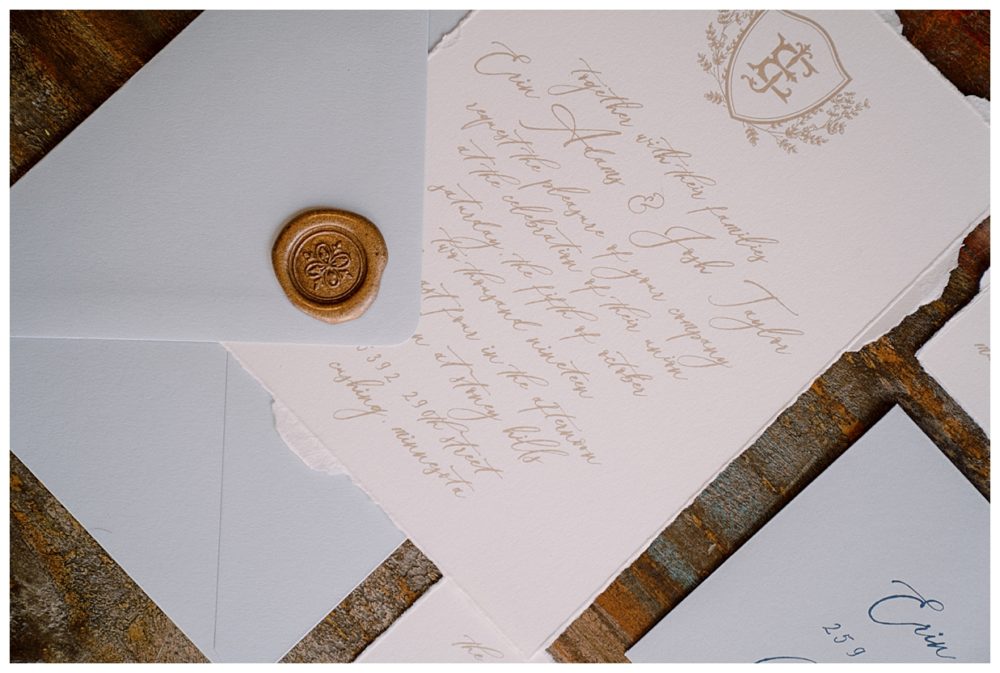 together with their families
Erin Adams & Josh Taylor
request the pleasure of your company
at the celebration of their union
saturday, the fifth of october
two thousand nineteen
at four in the afternoon
at stoney hills
5392 290th street
cushing, minnesota
the
Erin
259